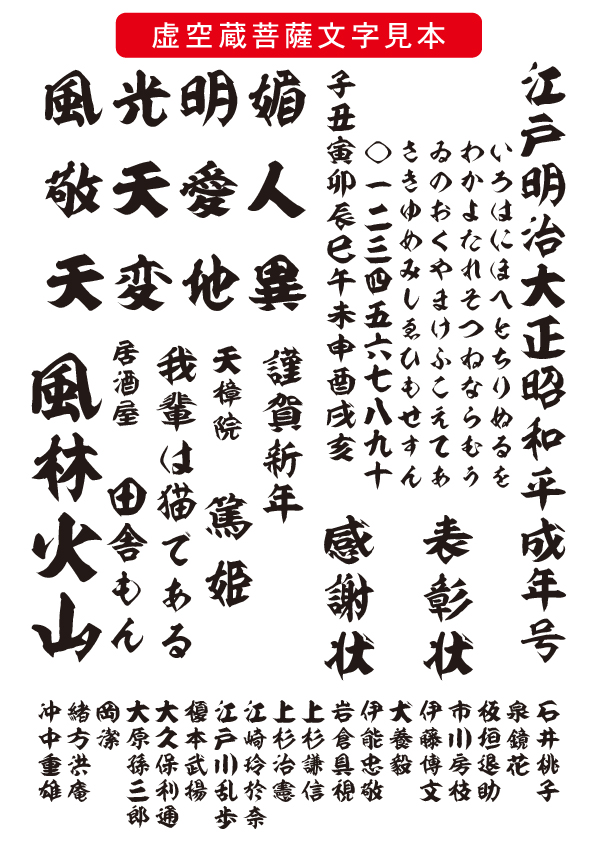 虚空蔵菩薩文字見本
江戸明治大正昭和平成年号
いろはにほへとちりぬるを
わかよたれそつねならむう
ゐのおくやまけふこえてあ
さきゆめみしゑひもせすん
〇一二三四五六七八九十
子丑寅卯辰巳午未申酉戌亥
表彰状
感謝状
媚人異
明愛地
光天変
風敬天
謹賀新年
天樟院 篤姫
我輩は猫である
居酒屋 田舎もん
風林火山
石井桃子
泉鏡花
板垣退助
市川房枝
伊藤博文
犬養毅
伊能忠敬
岩倉具視
上杉謙信
上杉治憲
江崎玲於奈
江戸川乱歩
榎本武揚
大久保利通
大原孫三郎
岡潔
緒方洪庵
沖中重雄